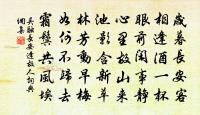 歲暮長安客
相逢酒一杯
眼前閑事靜
心里故山來
池影含新草
林芳動早梅
如何不歸去
霜鬢共風埃
吳融長安逢故人詞典
網集